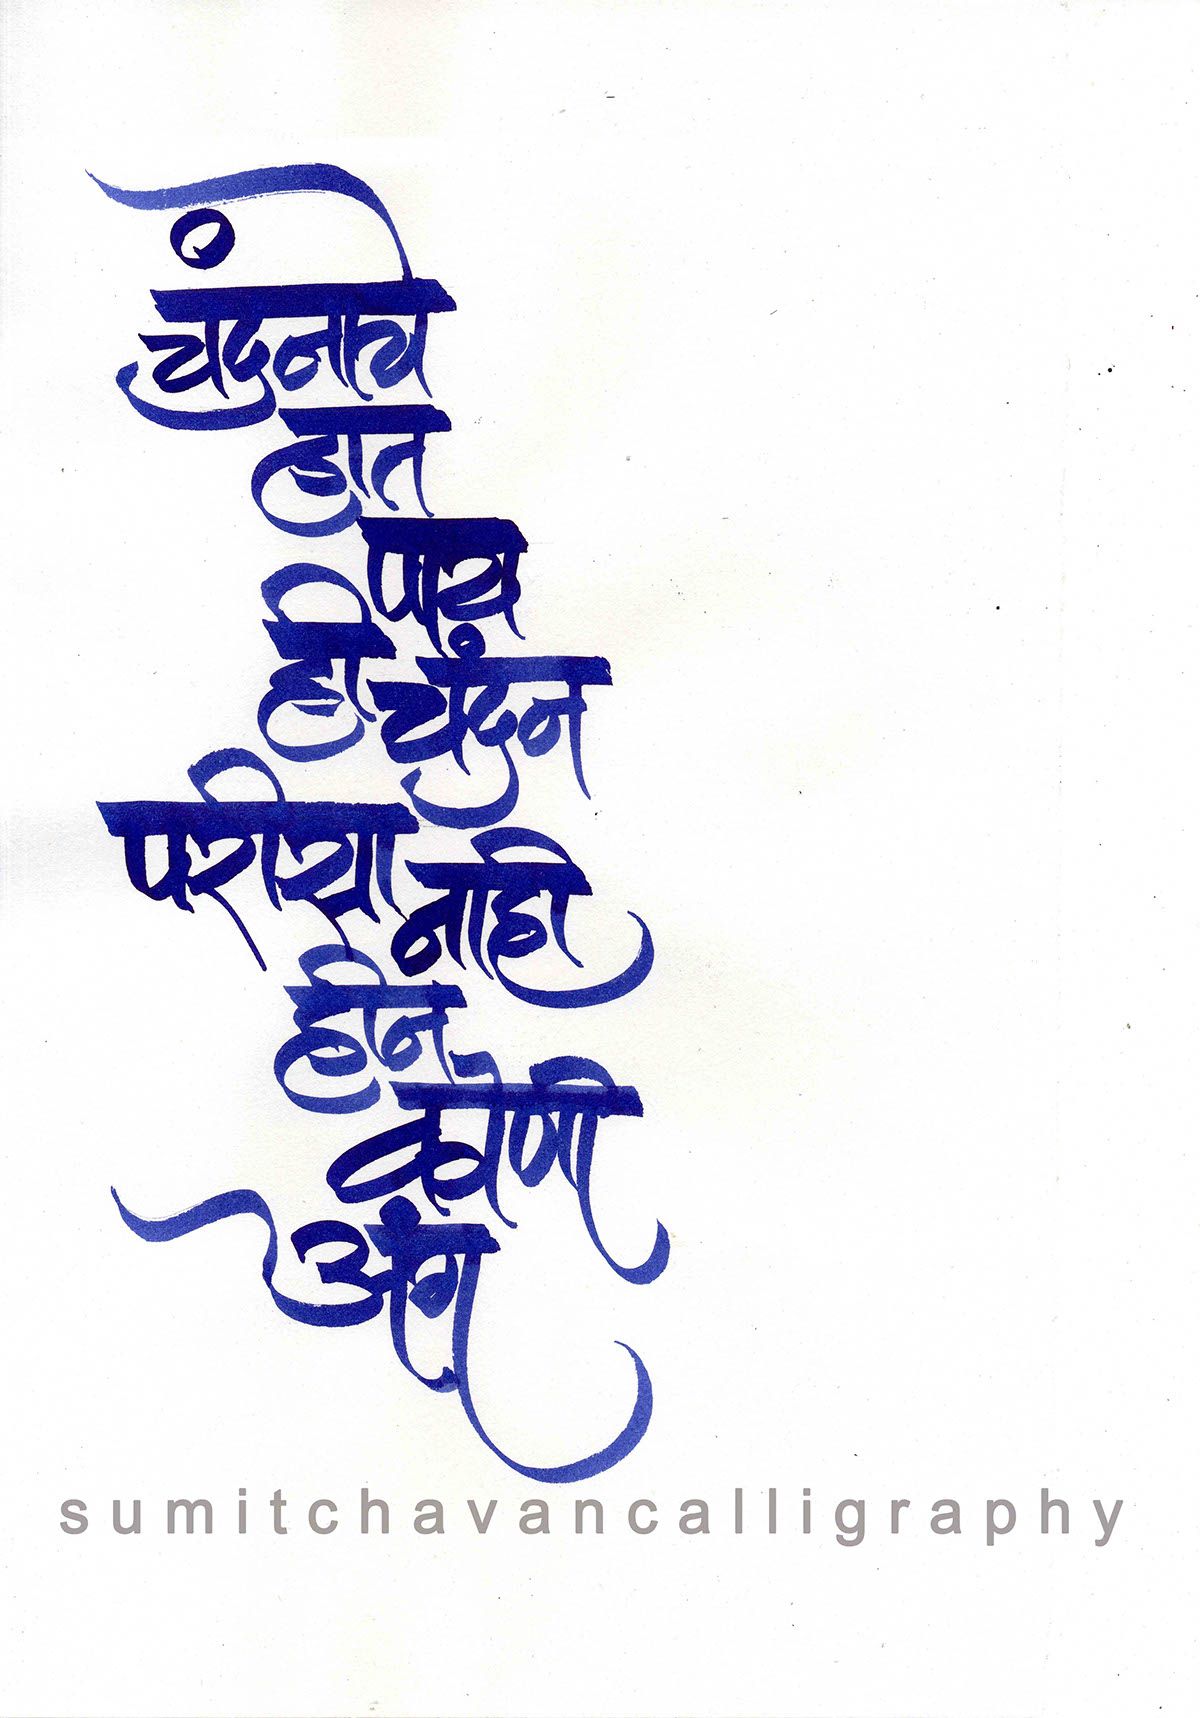 चंदनाचे
हात
पाय
ही चंदन
परीसा नाही
हीन
कोणी
अंग
sumitchavancalligraphy